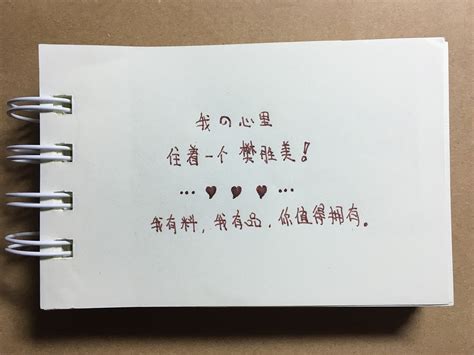 我の心里
住着一个樊胜美!
... ♥ ♥ ♥ ...
我有料,我有品,你值得拥有。